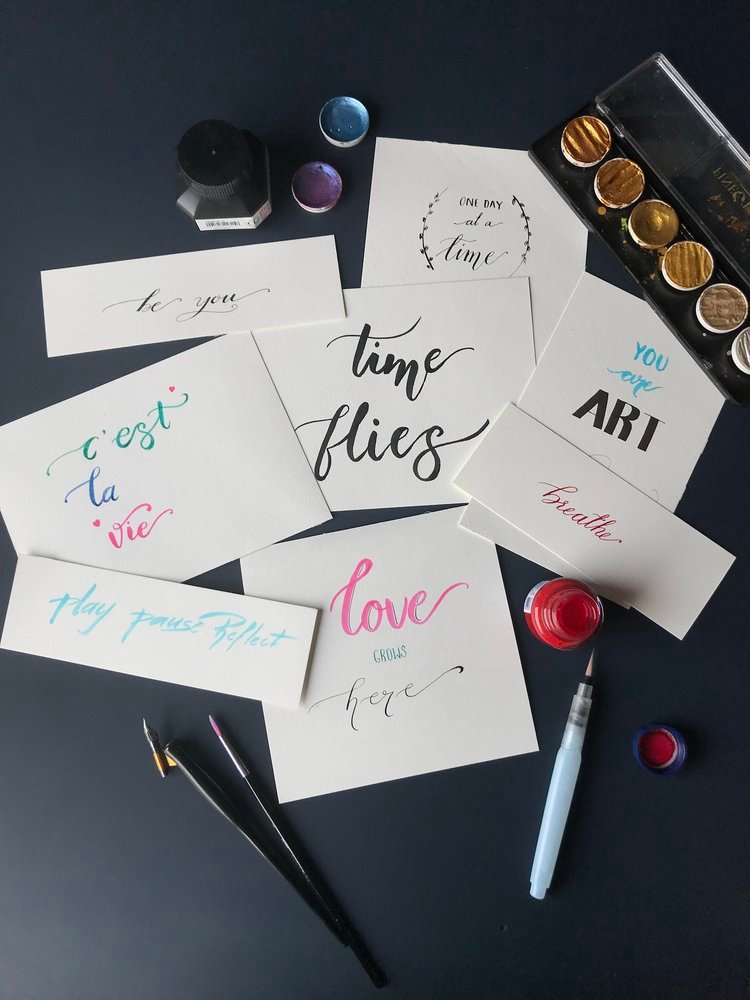 ONE DAY
at a
time
be you
time
flies
YOU
are
ART
c'est
la
vie
breathe
play pause Reflect
love
GROWS
here